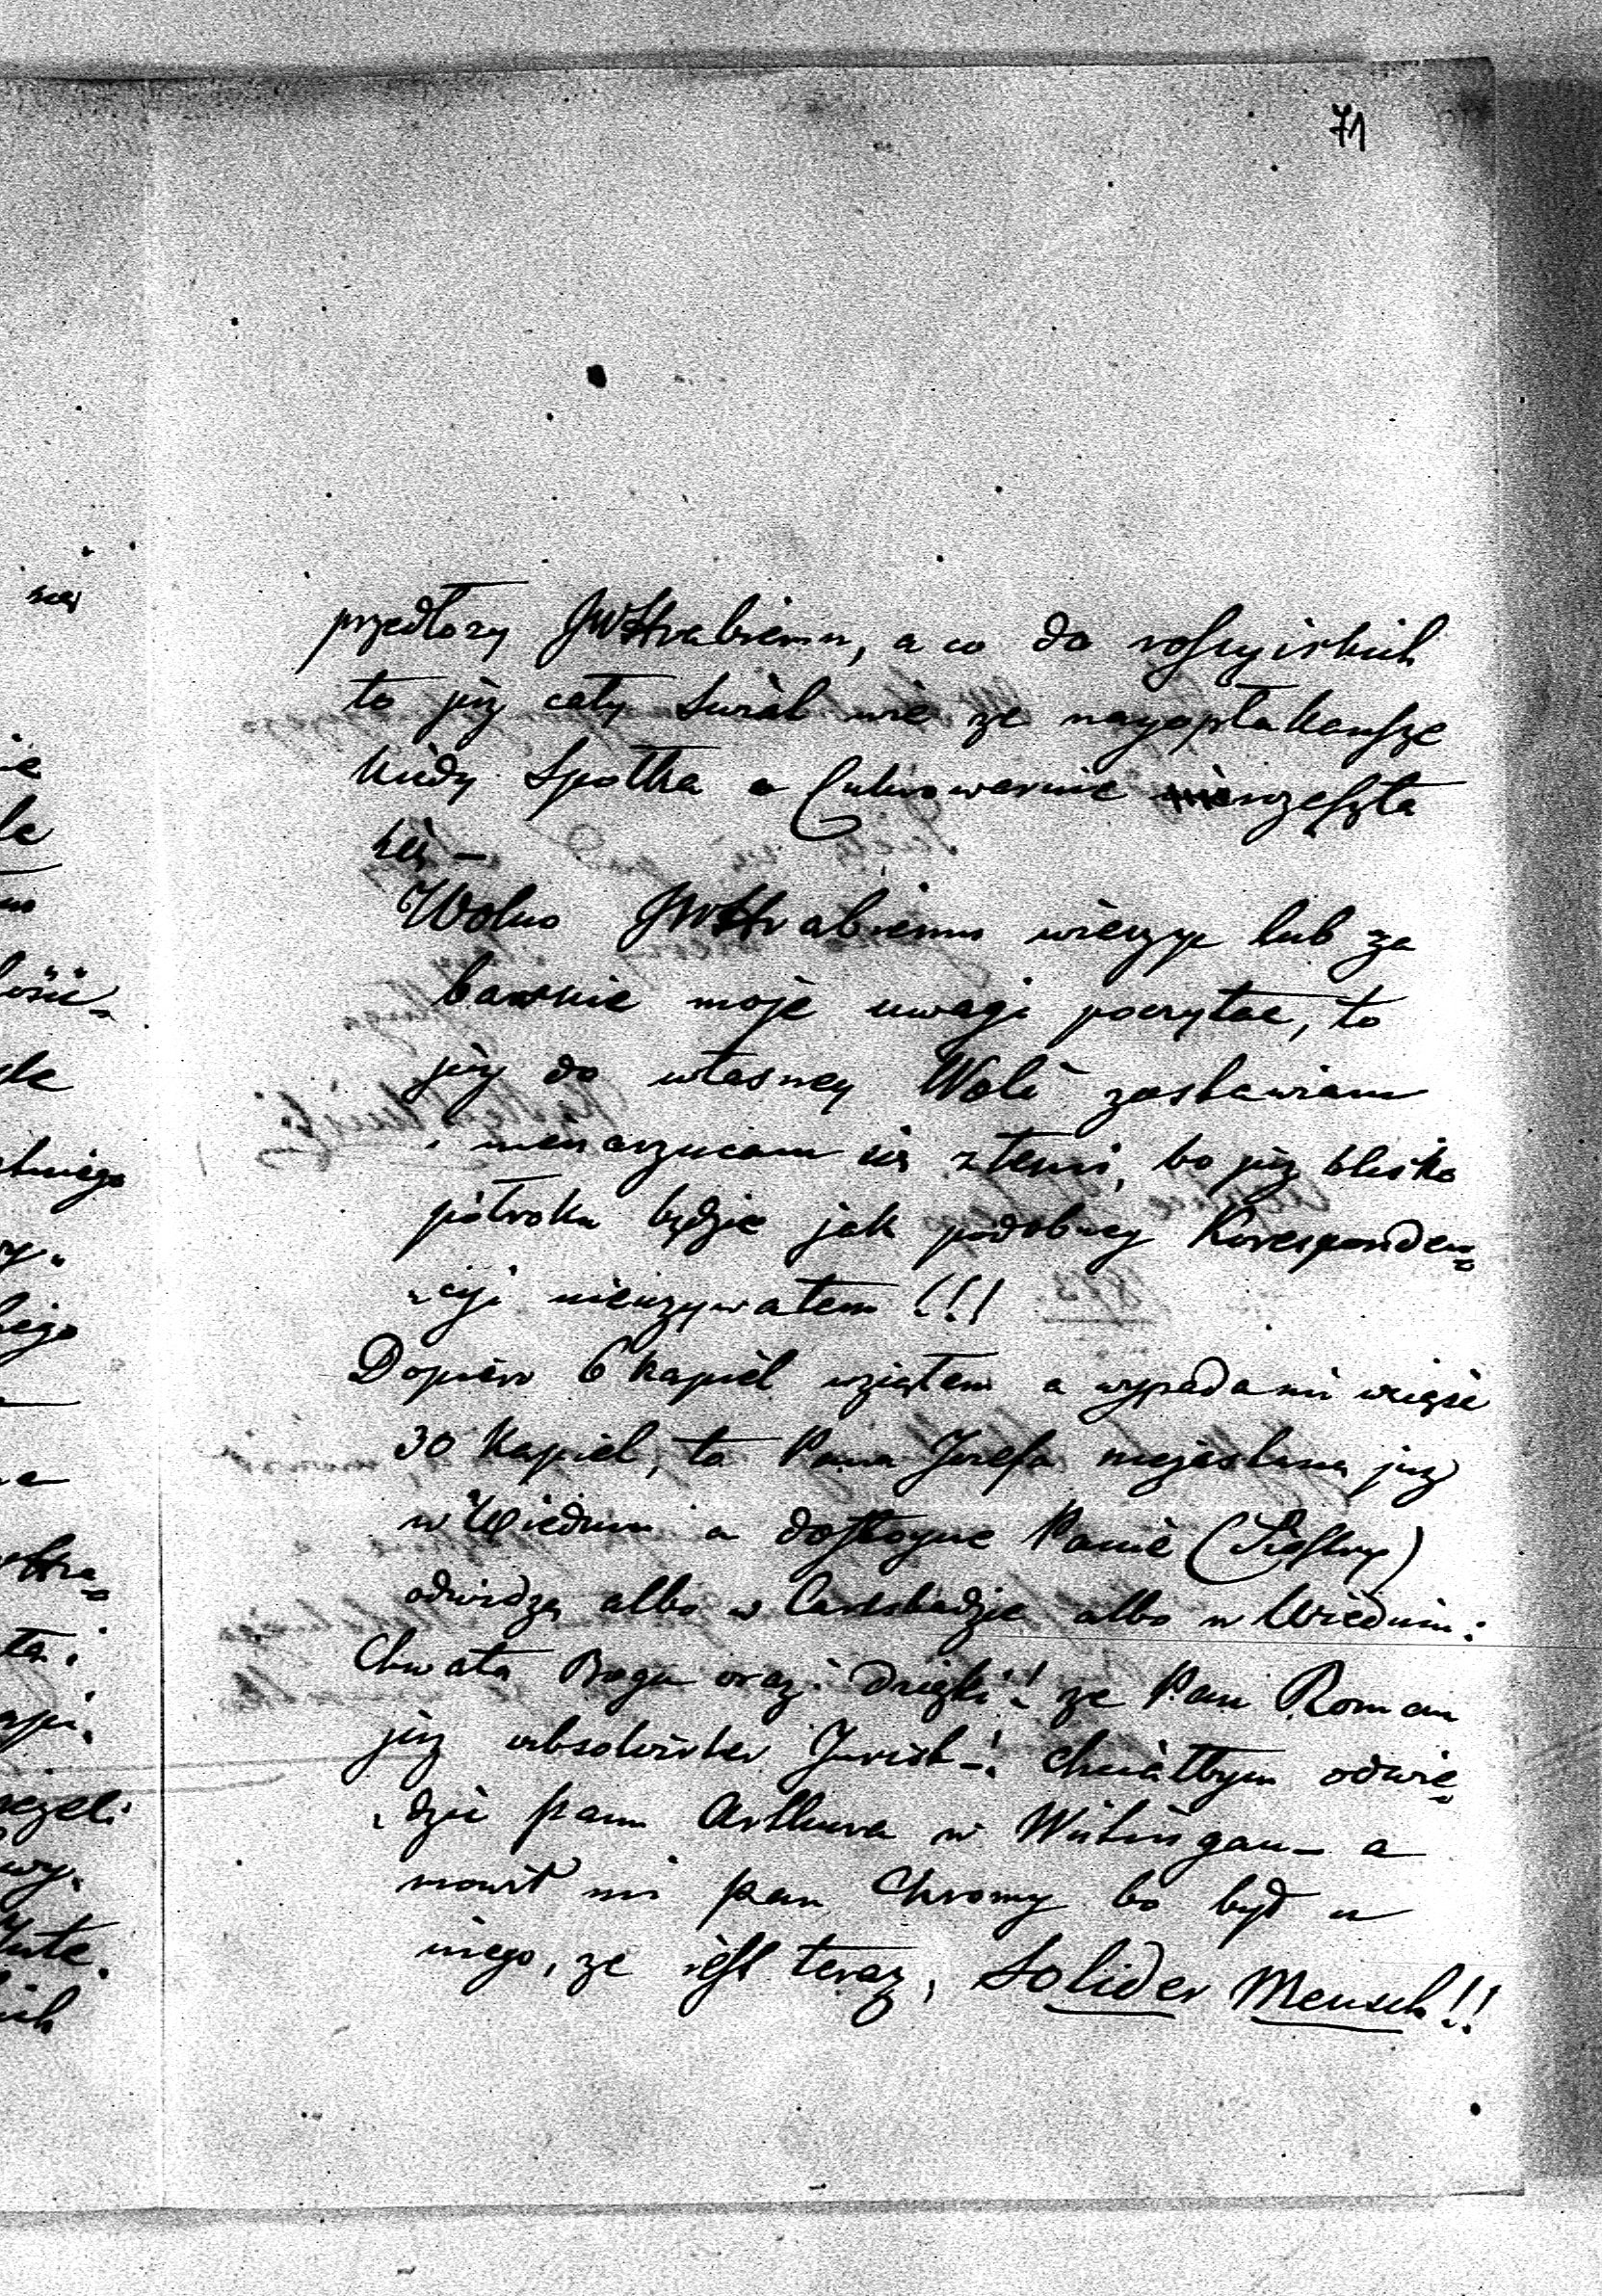 71
przedłozy JWHrabiemu, a co do rossyiskich
to juz cały swiat wie ze nayopłakansze
kiedy spotka a Cukrowarnie
się –
Wolno JWHrabiemu wierzyc lub za
baśnie moje uwagi poczytac, to
juz do własney Woli zostawiam
i nienarzucam się ztemi, bo juz blisko
półroku będzie jak podobney Koresponden=
=cyi nieuzywałem!!!
Dopiero 6 kapiel wziąłem a wypada mi wziąść
30 Kapiel, to Pana Josefa niezastanę juz
w Wiedniu a dostoyne Panie (Siestry)
odwidzą albo w Carlsbadzie albo w Wiedniu:
Chwała Bogu oraz dzięki! ze Pan Roman
juz absolvirter Jurist –! Chciałbym odwie=
=dzić pana Arthura w Wittingau – a
mowił mi pan Chromy bo był u
niego, ze jest teraz, Solider Mensch!!